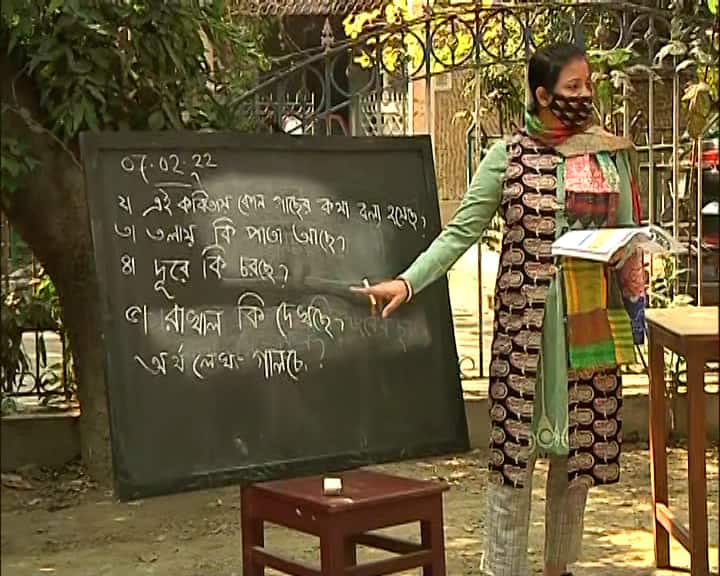 07.02.22
২। এই কবিতায় কোন গাছের কথা বলা হয়েছে?
৩। তলায় কি পাতা আছে?
৪। দূরে কি চরছে?
৫। রাখাল কি দেখছে?
অর্থ লেখঃ-